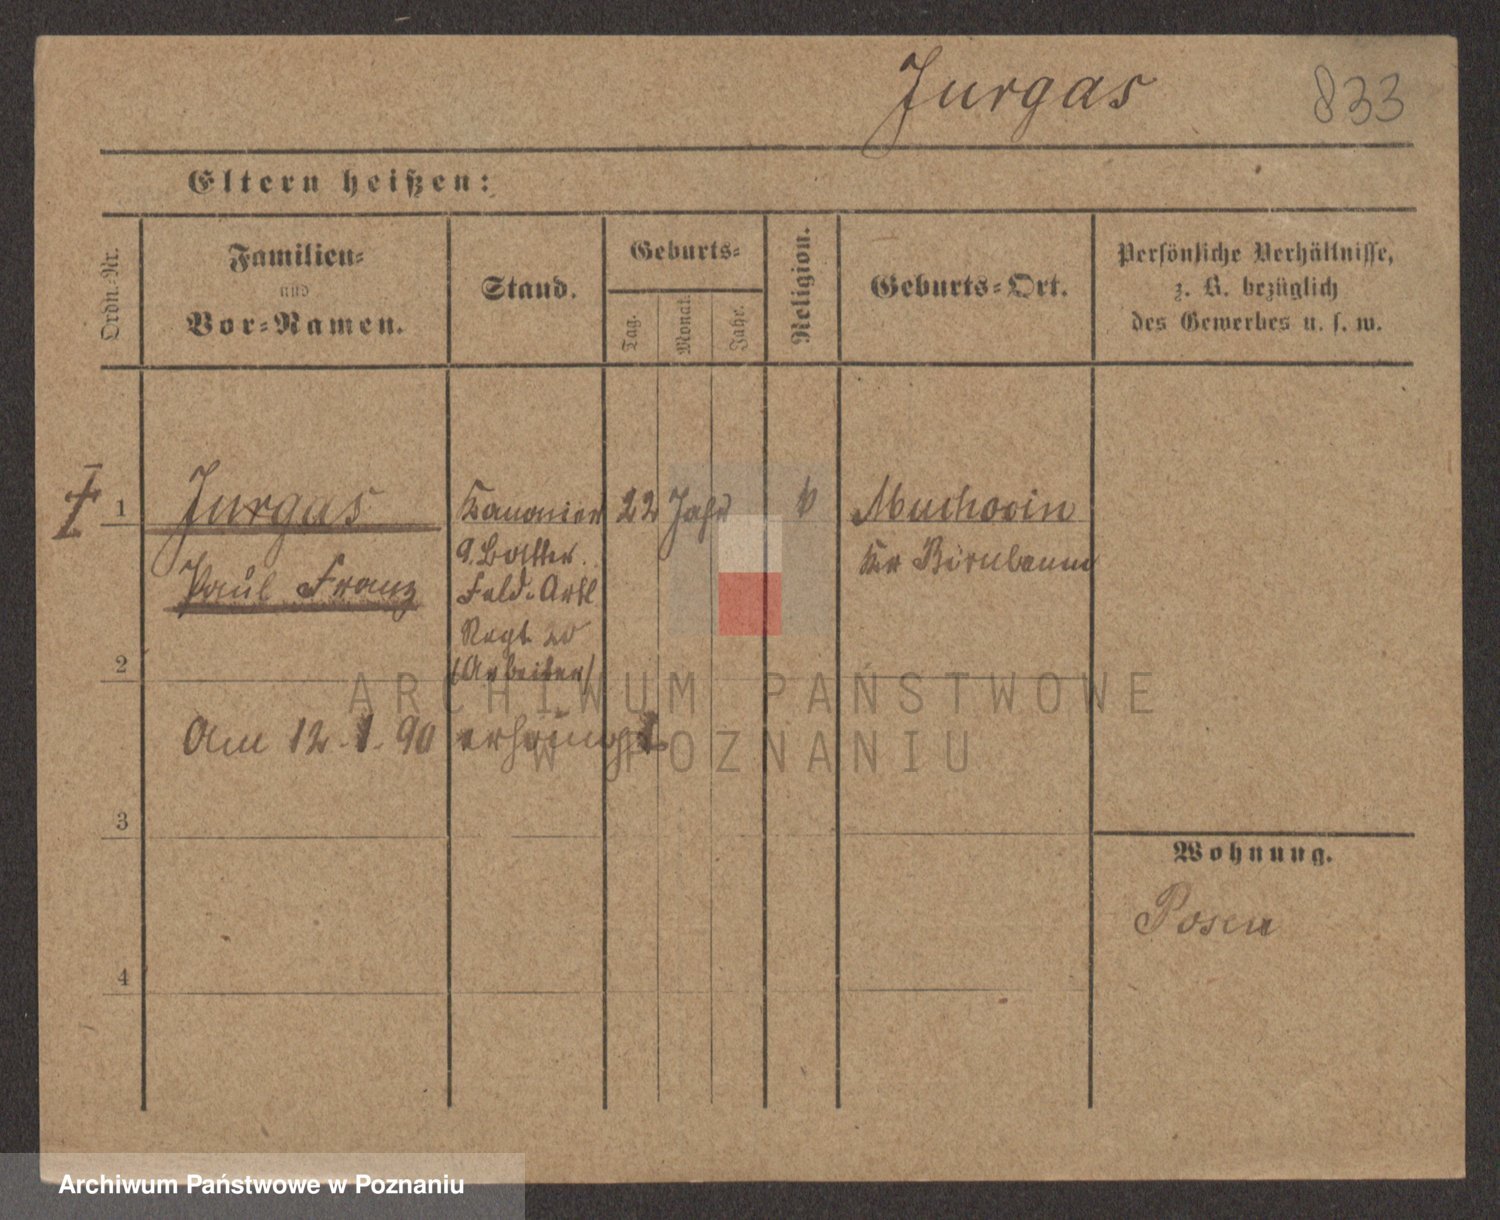 Jurgas 833
Eltern heißen:
Ordn.-Nr.
Familien-
und
Vor-Namen.
Stand.
Geburts-
Tag.
Monat.
Jahr.
Religion.
Geburts-Ort.
Persönliche Verhältnisse,
z. B. bezüglich
des Gewerbes u. s. w.
1 Jurgas Kanonier 22 Jahr Muchocin
Kr Birnbaum
Paul Franz
9. Batter.
Feld-Artl
Regt. 20
2 (Arbeiter)
Am 12.1.90 erhängt.
3
Wohnung.
Posen
4
ARCHIWUM PAŃSTWOWE
W POZNANIU
Archiwum Państwowe w Poznaniu